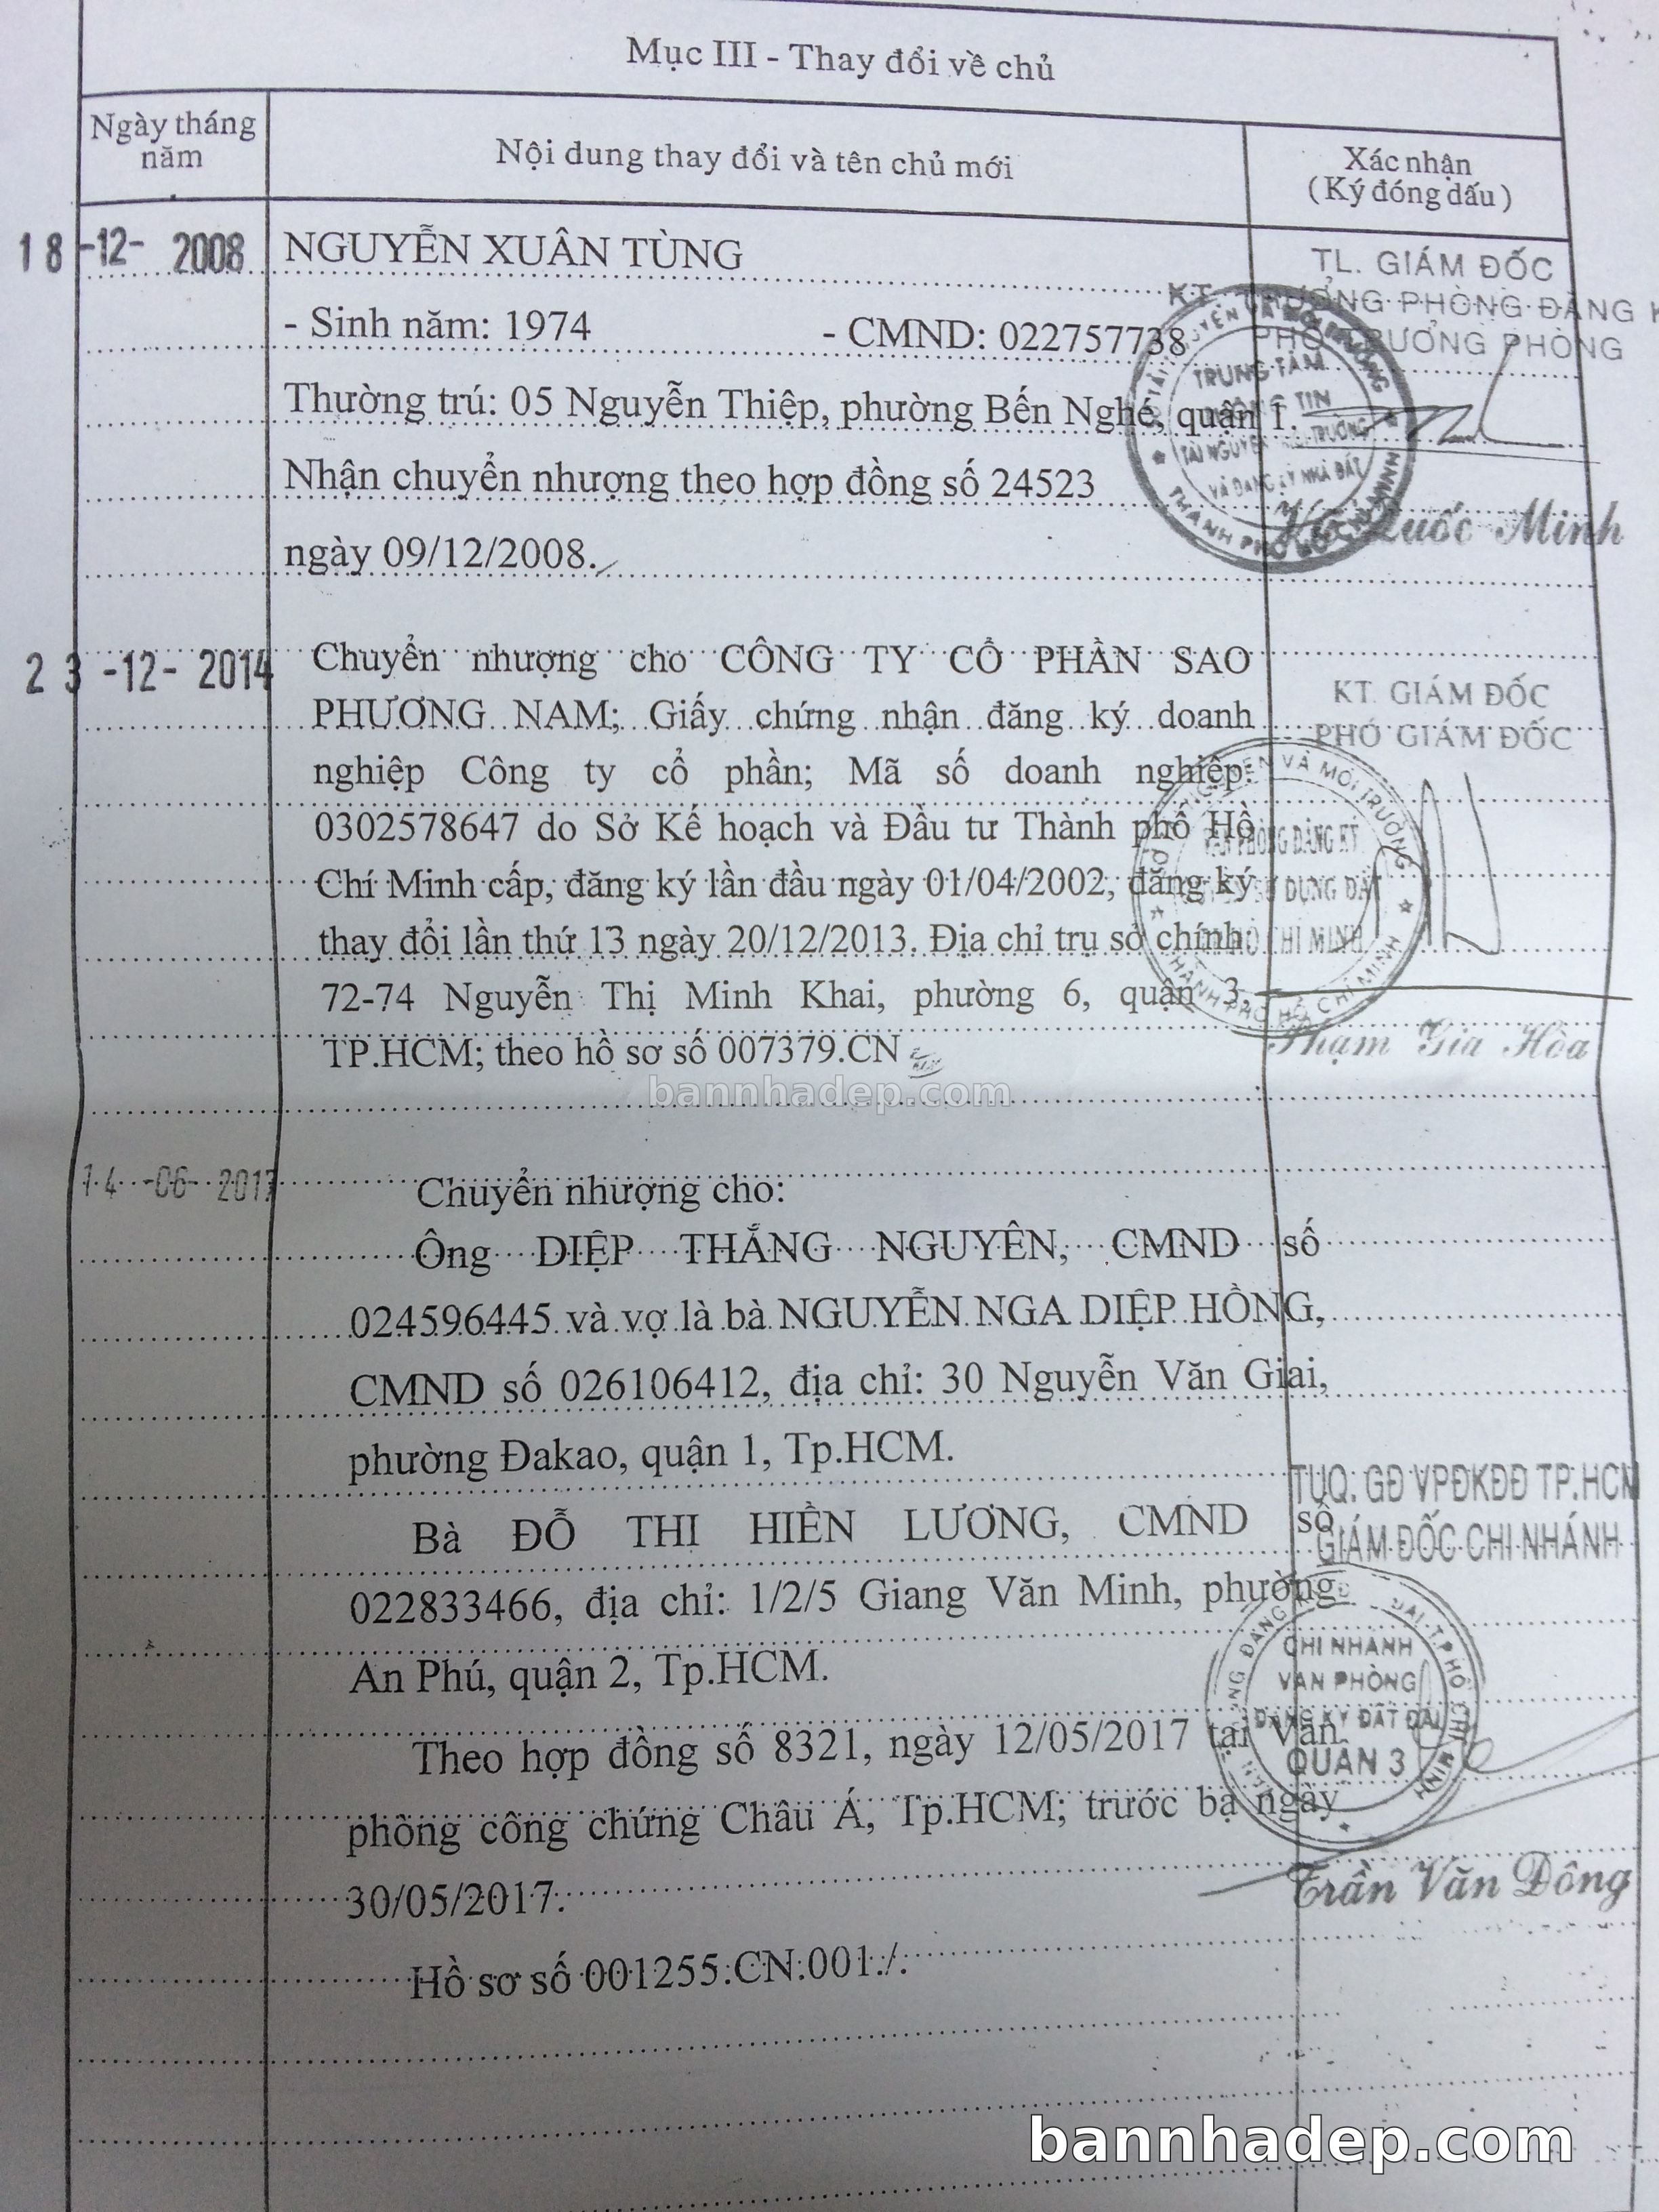 Mục III - Thay đổi về chủ
Ngày tháng năm
Nội dung thay đổi và tên chủ mới
Xác nhận
(Ký đóng dấu)
18-12-2008
NGUYỄN XUÂN TÙNG
- Sinh năm: 1974 - CMND: 022757738
Thường trú: 05 Nguyễn Thiệp, phường Bến Nghé, quận 1.
Nhận chuyển nhượng theo hợp đồng số 24523
ngày 09/12/2008.
TL. GIÁM ĐỐC
KT. TRƯỞNG PHÒNG ĐĂNG K
PHÓ TRƯỞNG PHÒNG
TRUNG TÂM
THÔNG TIN
TÀI NGUYÊN MÔI TRƯỜNG
VÀ ĐĂNG KÝ NHÀ ĐẤT
THÀNH PHỐ HỒ CHÍ MINH
Quốc Minh
23-12-2014
Chuyển nhượng cho CÔNG TY CỔ PHẦN SAO
PHƯƠNG NAM; Giấy chứng nhận đăng ký doanh
nghiệp Công ty cổ phần; Mã số doanh nghiệp:
0302578647 do Sở Kế hoạch và Đầu tư Thành phố Hồ
Chí Minh cấp, đăng ký lần đầu ngày 01/04/2002, đăng ký
thay đổi lần thứ 13 ngày 20/12/2013. Địa chỉ trụ sở chính
72-74 Nguyễn Thị Minh Khai, phường 6, quận 3,
TP.HCM; theo hồ sơ số 007379.CN
KT. GIÁM ĐỐC
PHÓ GIÁM ĐỐC
VĂN PHÒNG ĐĂNG KÝ
SỬ DỤNG ĐẤT
HỒ CHÍ MINH
THÀNH PHỐ HỒ CHÍ MINH
Phạm Gia Hòa
bannhadep.com
14-06-2017
Chuyển nhượng cho:
Ông DIỆP THẮNG NGUYÊN, CMND số
024596445 và vợ là bà NGUYỄN NGA DIỆP HỒNG,
CMND số 026106412, địa chỉ: 30 Nguyễn Văn Giai,
phường Đakao, quận 1, Tp.HCM.
Bà ĐỖ THỊ HIỀN LƯƠNG, CMND số
022833466, địa chỉ: 1/2/5 Giang Văn Minh, phường
An Phú, quận 2, Tp.HCM.
Theo hợp đồng số 8321, ngày 12/05/2017 tại Văn
phòng công chứng Châu Á, Tp.HCM; trước bạ ngày
30/05/2017.
Hồ sơ số 001255.CN.001./.
TUQ. GĐ VPĐKĐĐ TP.HCM
GIÁM ĐỐC CHI NHÁNH
CHI NHÁNH
VĂN PHÒNG
ĐĂNG KÝ ĐẤT ĐAI
QUẬN 3
Trần Văn Đông
bannhadep.com